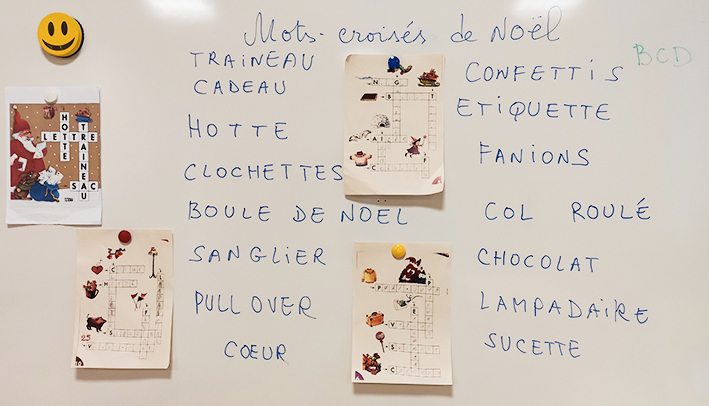 Mots-croisés de Noël
TRAINEAU
CADEAU
HOTTE
CLOCHETTES
BOULE DE NOEL
SANGLIER
PULLOVER
COEUR
CONFETTIS
ETIQUETTE
FANIONS
COL ROULÉ
CHOCOLAT
LAMPADAIRE
SUCETTE
BCD
HOTTE
LETTRE
TRAINEAU
SAC
25